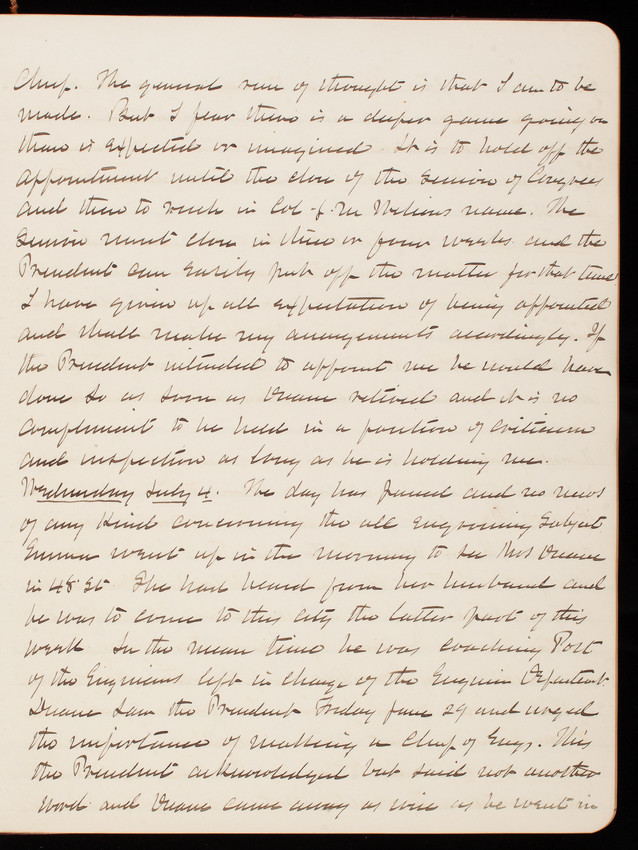 Chief. The general run of thought is that I am to be
made. But I fear there is a deeper game going on
than is expected or imagined. It is to hold off the
appointment until the close of the Session of Congress
and then to rush in Col. J. M. Wilson's name. The
Session must close in three or four weeks and the
President can easily put off the matter for that time
I have given up all expectation of being appointed
and shall make my arrangements accordingly. If
the President intended to appoint me he would have
done so as soon as Duane retired and it is no
compliment to be held in a position of criticism
and inspection as long as he is holding me.
Wednesday July 4. The day has passed and no news
of any kind concerning the all engrossing subject
Emma went up in the morning to see Mrs Duane
in 48 St. She had heard from her husband and
he was to come to this city the latter part of this
week In the mean time he was coaching Post
of the Engineers left in charge of the Engineer Department
Duane saw the President Friday June 29 and urged
the importance of making a Chief of Engs. This
the President acknowledged but said not another
word and Duane came away as wise as he went in